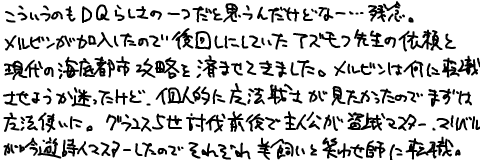 こういうのもDQらしさの一つだと思うんだけどなー…残念。
メルビンが加入したので後回しにしていたアズモフ先生の依頼と
現代の海底都市攻略を済ませてきました。メルビンは何に転職
させようか迷ったけど、個人的に魔法戦士が見たかったのでまずは
魔法使いに。グラコス5世討伐前後で主人公が盗賊マスター、マリベル
が吟遊詩人マスターしたのでそれぞれ羊飼いと笑わせ師に転職。